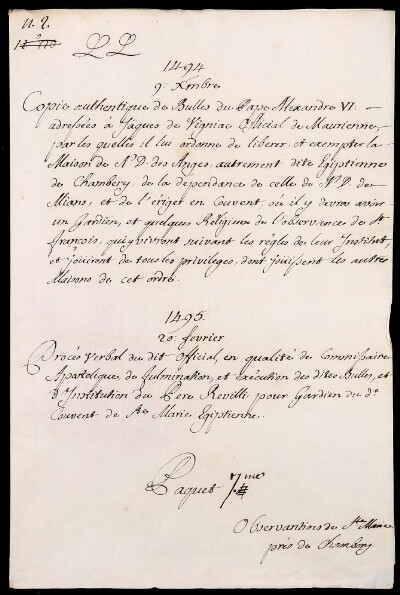 n. 2.
LL
1494
9: Xmbre
Copie authentique de Bulles du Pape Alexandre VI
adressées à Jaques de Vigniac Official de Maurienne,
par les quelles il lui ordonne de liberer, et exempter la
Maison de N.e D. des Anges, autrement dite Egiptienne
de Chambery, de la dependance de celle de N.e D. de
Mians, et de l'eriger en Couvent, où il y devra avoir
un Gardien, et quelques Religieux de l'observance de St
françois, qui y vivront suivant les règles de leur Institut,
et jouiront de tous les privileges, dont jouissent les autres
Maisons de cet ordre.
1495.
20. fevrier
Procés verbal du dit Official, en qualité de Commissaire
Apostolique, de fulmination, et exécution des dites Bulles, et
d'Institution du Pere Revilli pour Gardien du d.t
Couvent de Ste Marie Egiptienne.
Paquet 7me
Observantins de Ste Marie
près de Chambery